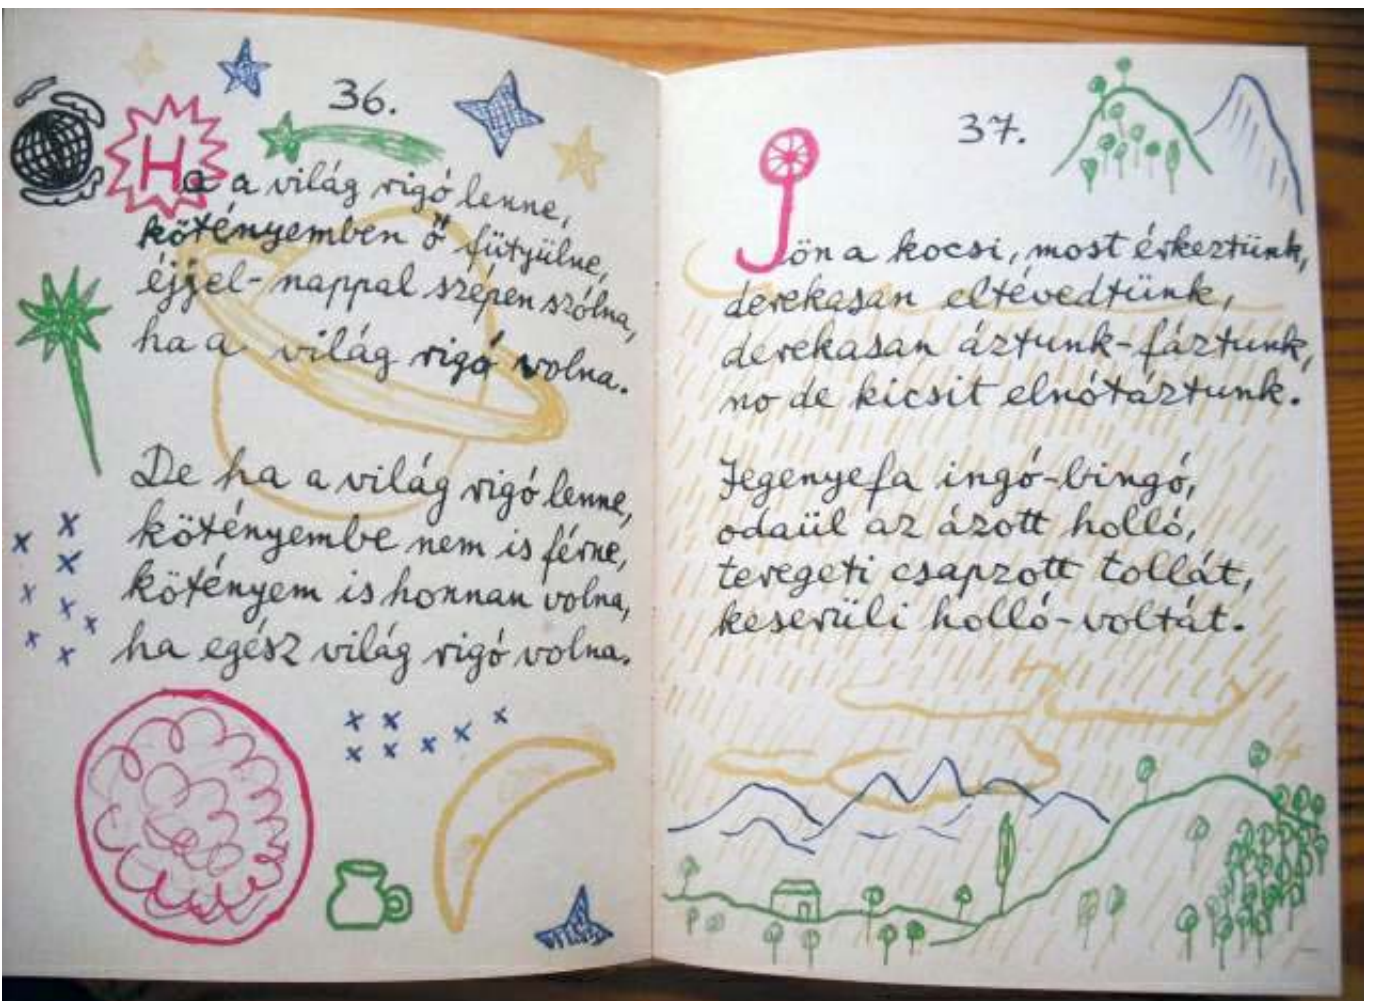 36.
Ha a világ rigó lenne,
kötényemben ő fütyülne,
éjjel-nappal szépen szólna,
ha a világ rigó volna.
De ha a világ rigó lenne,
kötényembe nem is férne,
kötényem is honnan volna,
ha egész világ rigó volna.
37.
Jön a kocsi, most érkeztünk,
derekasan eltévedtünk,
derekasan áztunk-fáztunk,
no de kicsit elnótáztunk.
Jegenyefa ingó-bingó,
odaül az ázott holló,
teregeti csapzott tollát,
keserüli holló-voltát.